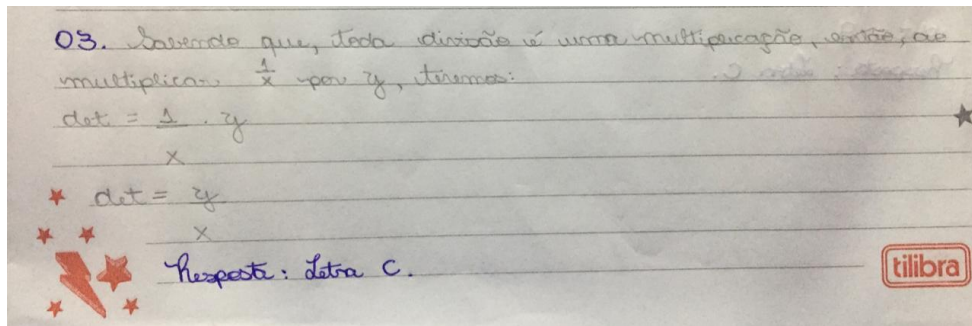 03. Sabendo que, toda divisão é uma multiplicação, então, ao
multiplicar 1/x por y, teremos:
det = 1 . y
x
det = y
x
Resposta: Letra C.
tilibra